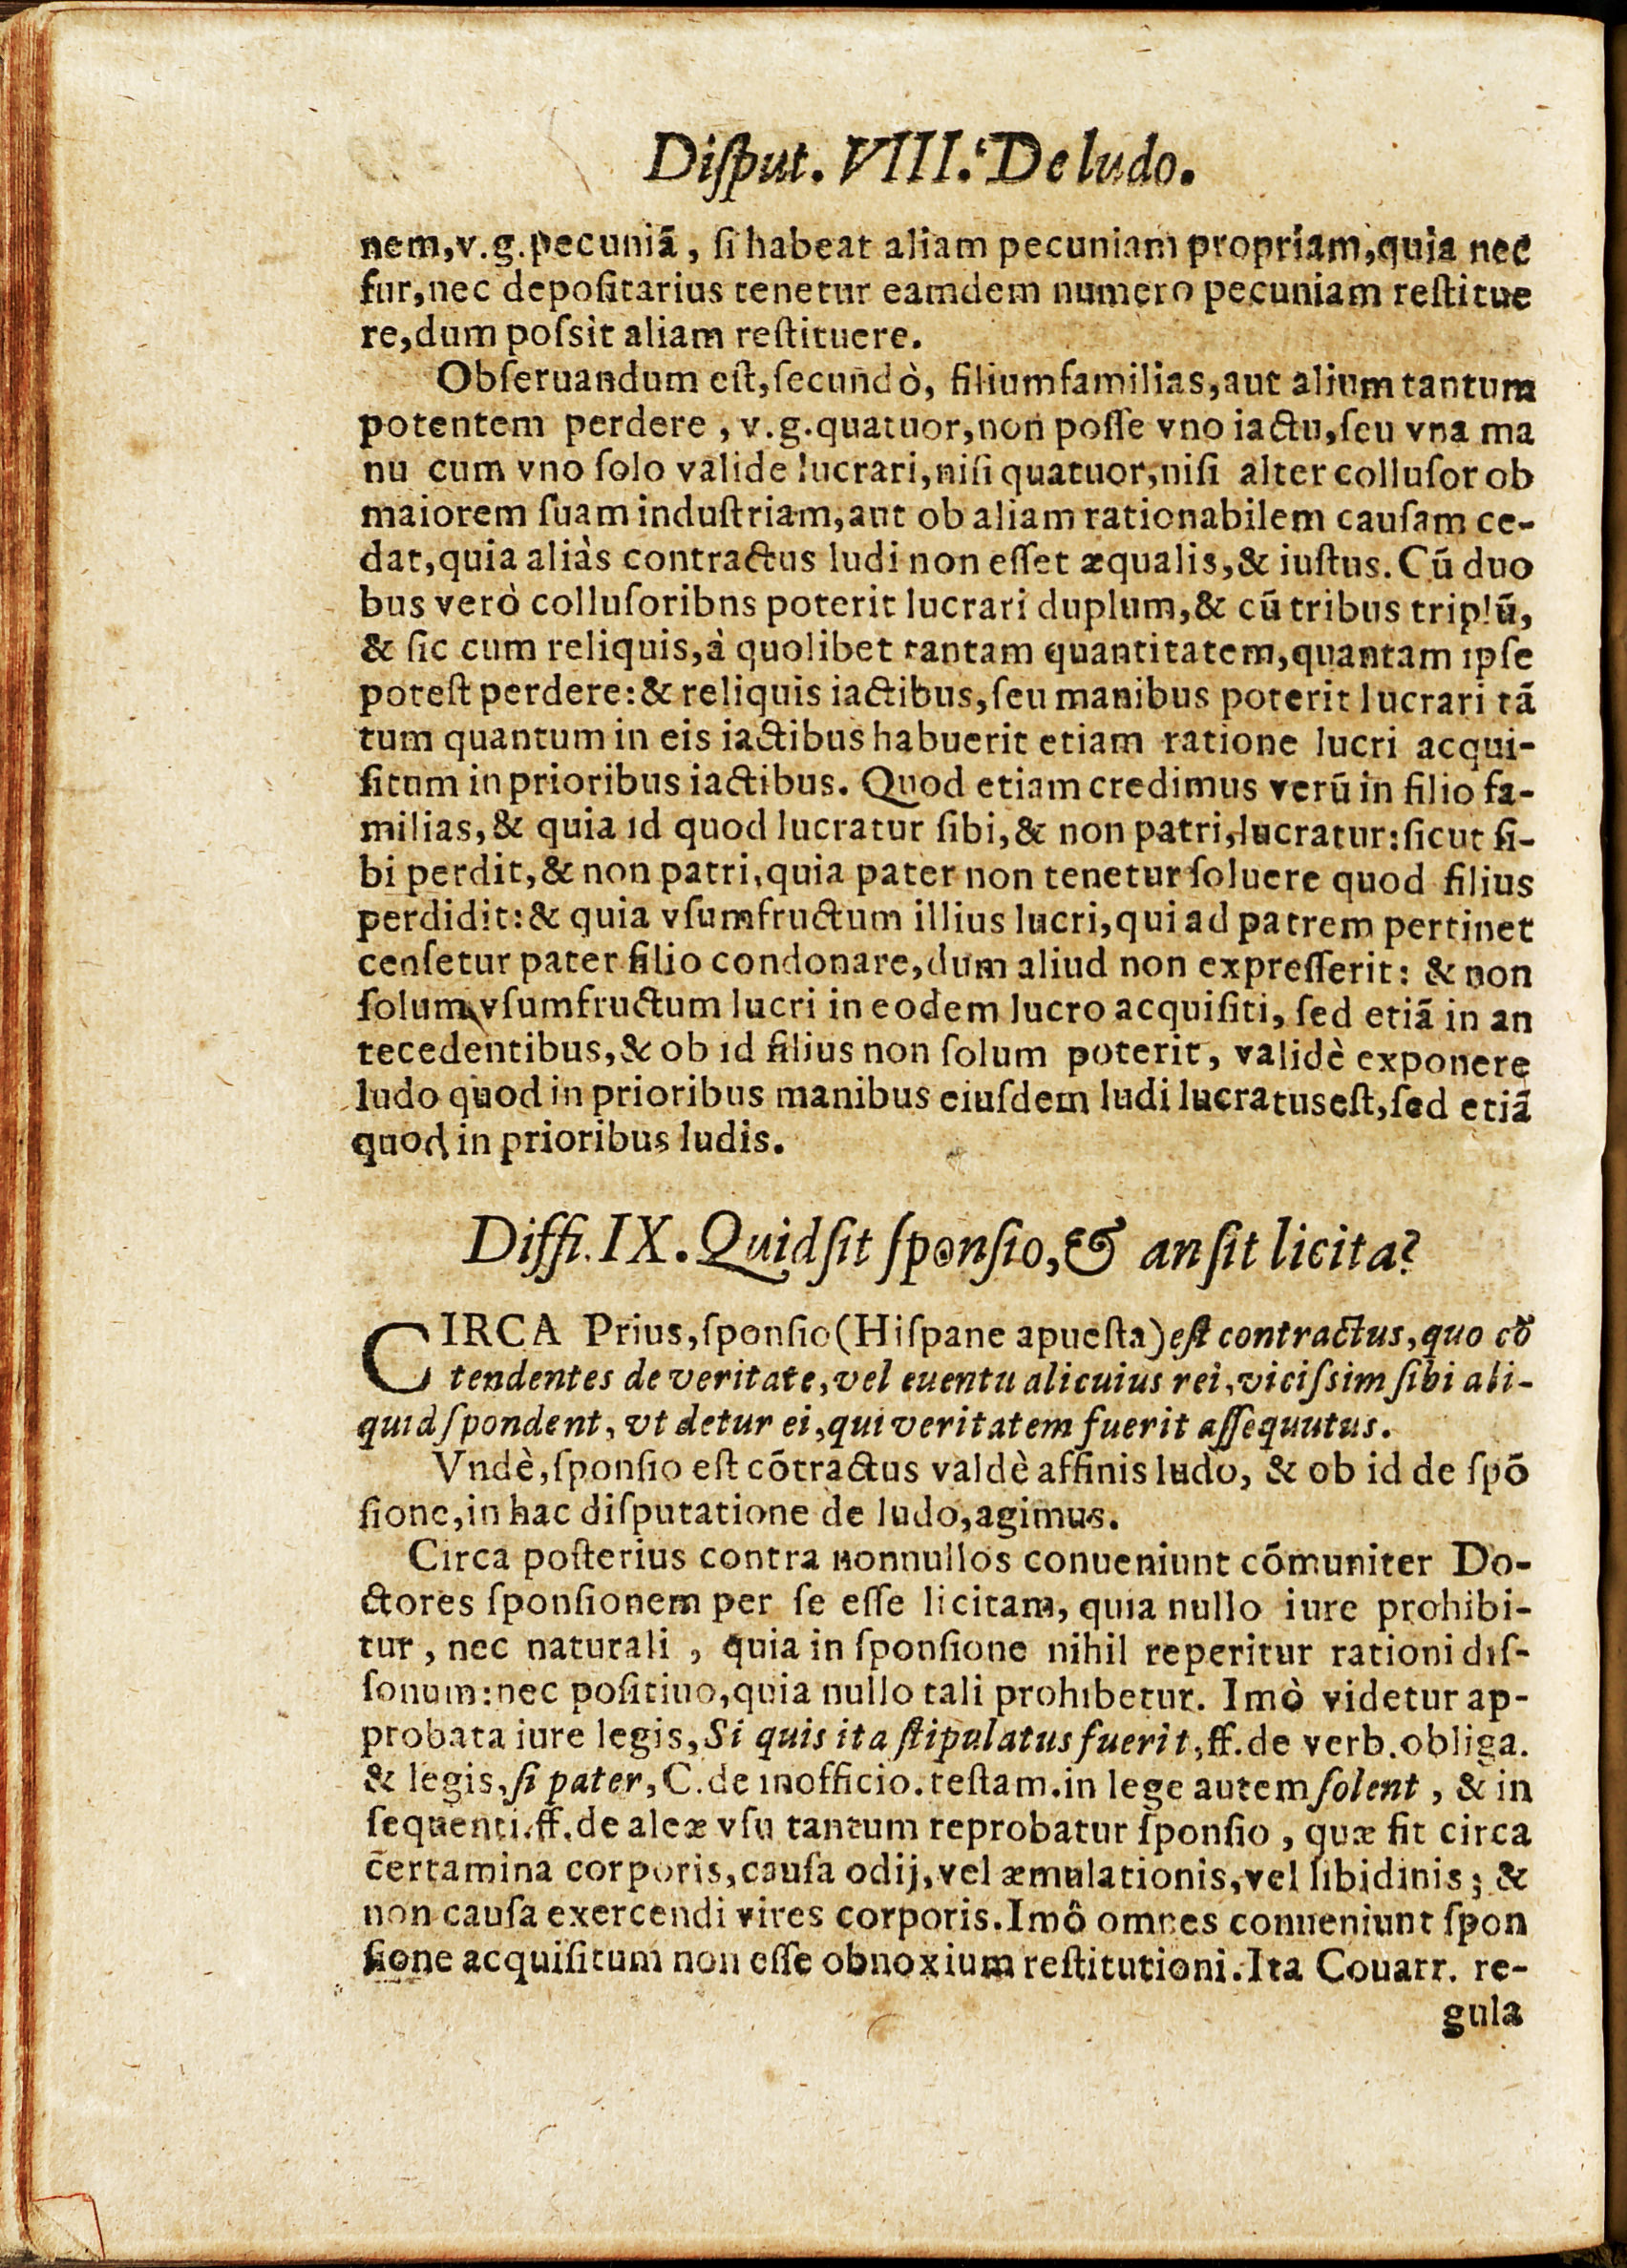 Diſput. VIII. De ludo.
nem, v.g. pecuniã, ſi habeat aliam pecuniam propriam, quia nec
fur, nec depoſitarius tenetur eamdem numero pecuniam reſtitue
re, dum poſsit aliam reſtituere.
Obſeruandum eſt, ſecundò, filiumfamilias, aut alium tantum
potentem perdere, v.g. quatuor, non poſſe vno iactu, ſeu vna ma
nu cum vno ſolo valide lucrari, niſi quatuor, niſi alter colluſor ob
maiorem ſuam induſtriam, aut ob aliam rationabilem cauſam ce-
dat, quia aliàs contractus ludi non eſſet æqualis, & iuſtus. Cũ duo
bus verò colluſoribns poterit lucrari duplum, & cũ tribus triplũ,
& ſic cum reliquis, à quolibet tantam quantitatem, quantam ipſe
poteſt perdere: & reliquis iactibus, ſeu manibus poterit lucrari tã
tum quantum in eis iactibus habuerit etiam ratione lucri acqui-
ſitum in prioribus iactibus. Quod etiam credimus verũ in filio fa-
milias, & quia id quod lucratur ſibi, & non patri, lucratur: ſicut ſi-
bi perdit, & non patri, quia pater non tenetur ſoluere quod filius
perdidit: & quia vſumfructum illius lucri, qui ad patrem pertinet
cenſetur pater filio condonare, dum aliud non expreſſerit: & non
ſolum vſumfructum lucri in eodem lucro acquiſiti, ſed etiã in an
tecedentibus, & ob id filius non ſolum poterit, validè exponere
ludo quod in prioribus manibus eiuſdem ludi lucratus eſt, ſed etiã
quod in prioribus ludis.
Diffi. IX. Quid ſit ſponſio, & an ſit licita?
CIRCA Prius, ſponſio (Hiſpane apueſta) eſt contractus, quo cõ
tendentes de veritate, vel euentu alicuius rei, viciſsim ſibi ali-
quid ſpondent, vt detur ei, qui veritatem fuerit aſſequutus.
Vndè, ſponſio eſt cõtractus valdè affinis ludo, & ob id de ſpõ
ſione, in hac diſputatione de ludo, agimus.
Circa poſterius contra nonnullos conueniunt cõmuniter Do-
ctores ſponſionem per ſe eſſe licitam, quia nullo iure prohibi-
tur, nec naturali, quia in ſponſione nihil reperitur rationi diſ-
ſonum: nec poſitiuo, quia nullo tali prohibetur. Imò videtur ap-
probata iure legis, Si quis ita ſtipulatus fuerit, ff. de verb. obliga.
& legis, ſi pater, C. de inofficio. teſtam. in lege autem ſolent, & in
ſequenti. ff. de aleæ vſu tantum reprobatur ſponſio, quæ fit circa
certamina corporis, cauſa odij, vel æmulationis, vel libidinis; &
non cauſa exercendi vires corporis. Imô omnes conueniunt ſpon
ſione acquiſitum non eſſe obnoxium reſtitutioni. Ita Couarr. re-
gula